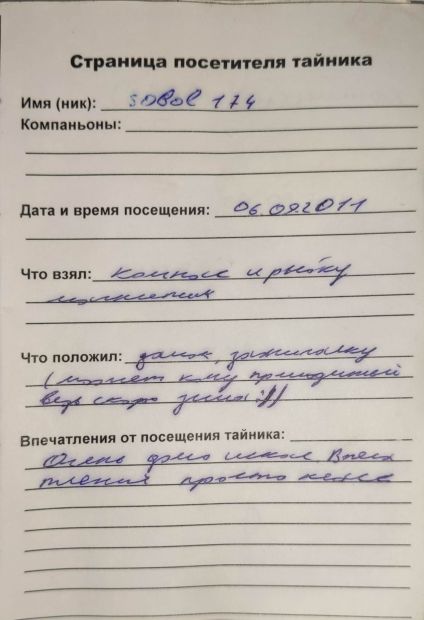 Страница посетителя тайника
Имя (ник): SOBOL 174
Компаньоны:
Дата и время посещения: 06.09.2011
Что взял: компас и рыбку
магнитик
Что положил: замок, зажигалку
(может кому пригодится
ведь скоро зима :))
Впечатления от посещения тайника:
Очень долго искал. Впеча
тления просто